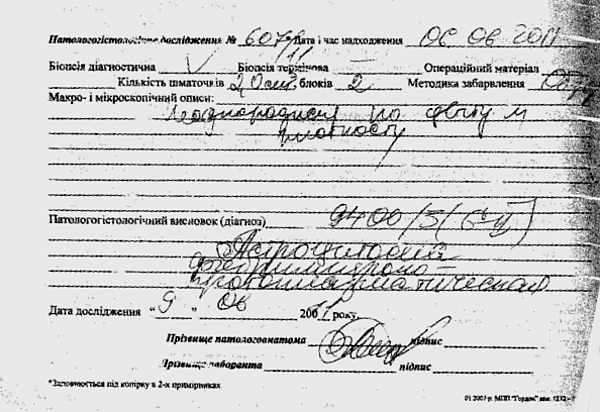 Патологогістологічне дослідження № 6079/11 Дата і час надходження 06 06 2011
Біопсія діагностична V Біопсія термінова — Операційний матеріал —
Кількість шматочків блоків 2 Методика забарвлення
Макро- і мікроскопічний опис:
Неоднородная по цвету и
плотности
Патологогістологічний висновок (діагноз) 9400/3
Астроцитома
фибриллярно-
протоплазматическая
Дата дослідження "9" 06 2011 року
Прізвище патологоанатома підпис
Прізвище лаборанта підпис
*Заповнюється під копірку в 2-х примірниках
01 2007 р. МПП "Гордон" зам.